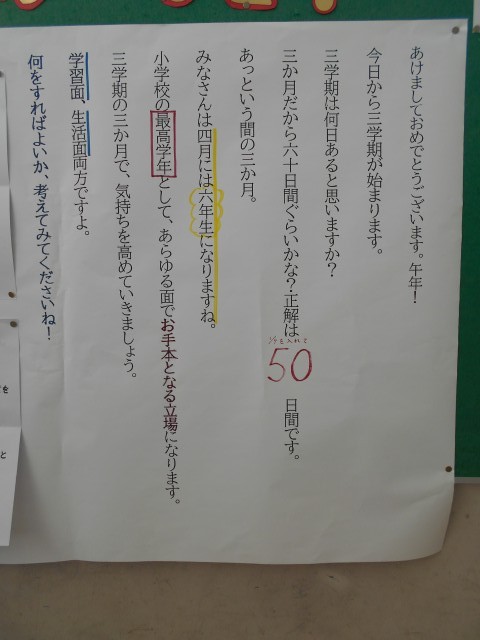 あけましておめでとうございます。午年！
今日から三学期が始まります。
三学期は何日あると思いますか？
三か月だから六十日間ぐらいかな？正解は50日間です。
あっという間の三か月。
みなさんは四月には六年生になりますね。
小学校の最高学年として、あらゆる面でお手本となる立場になります。
三学期の三か月で、気持ちを高めていきましょう。
学習面、生活面両方ですよ。
何をすればよいか、考えてみてくださいね！